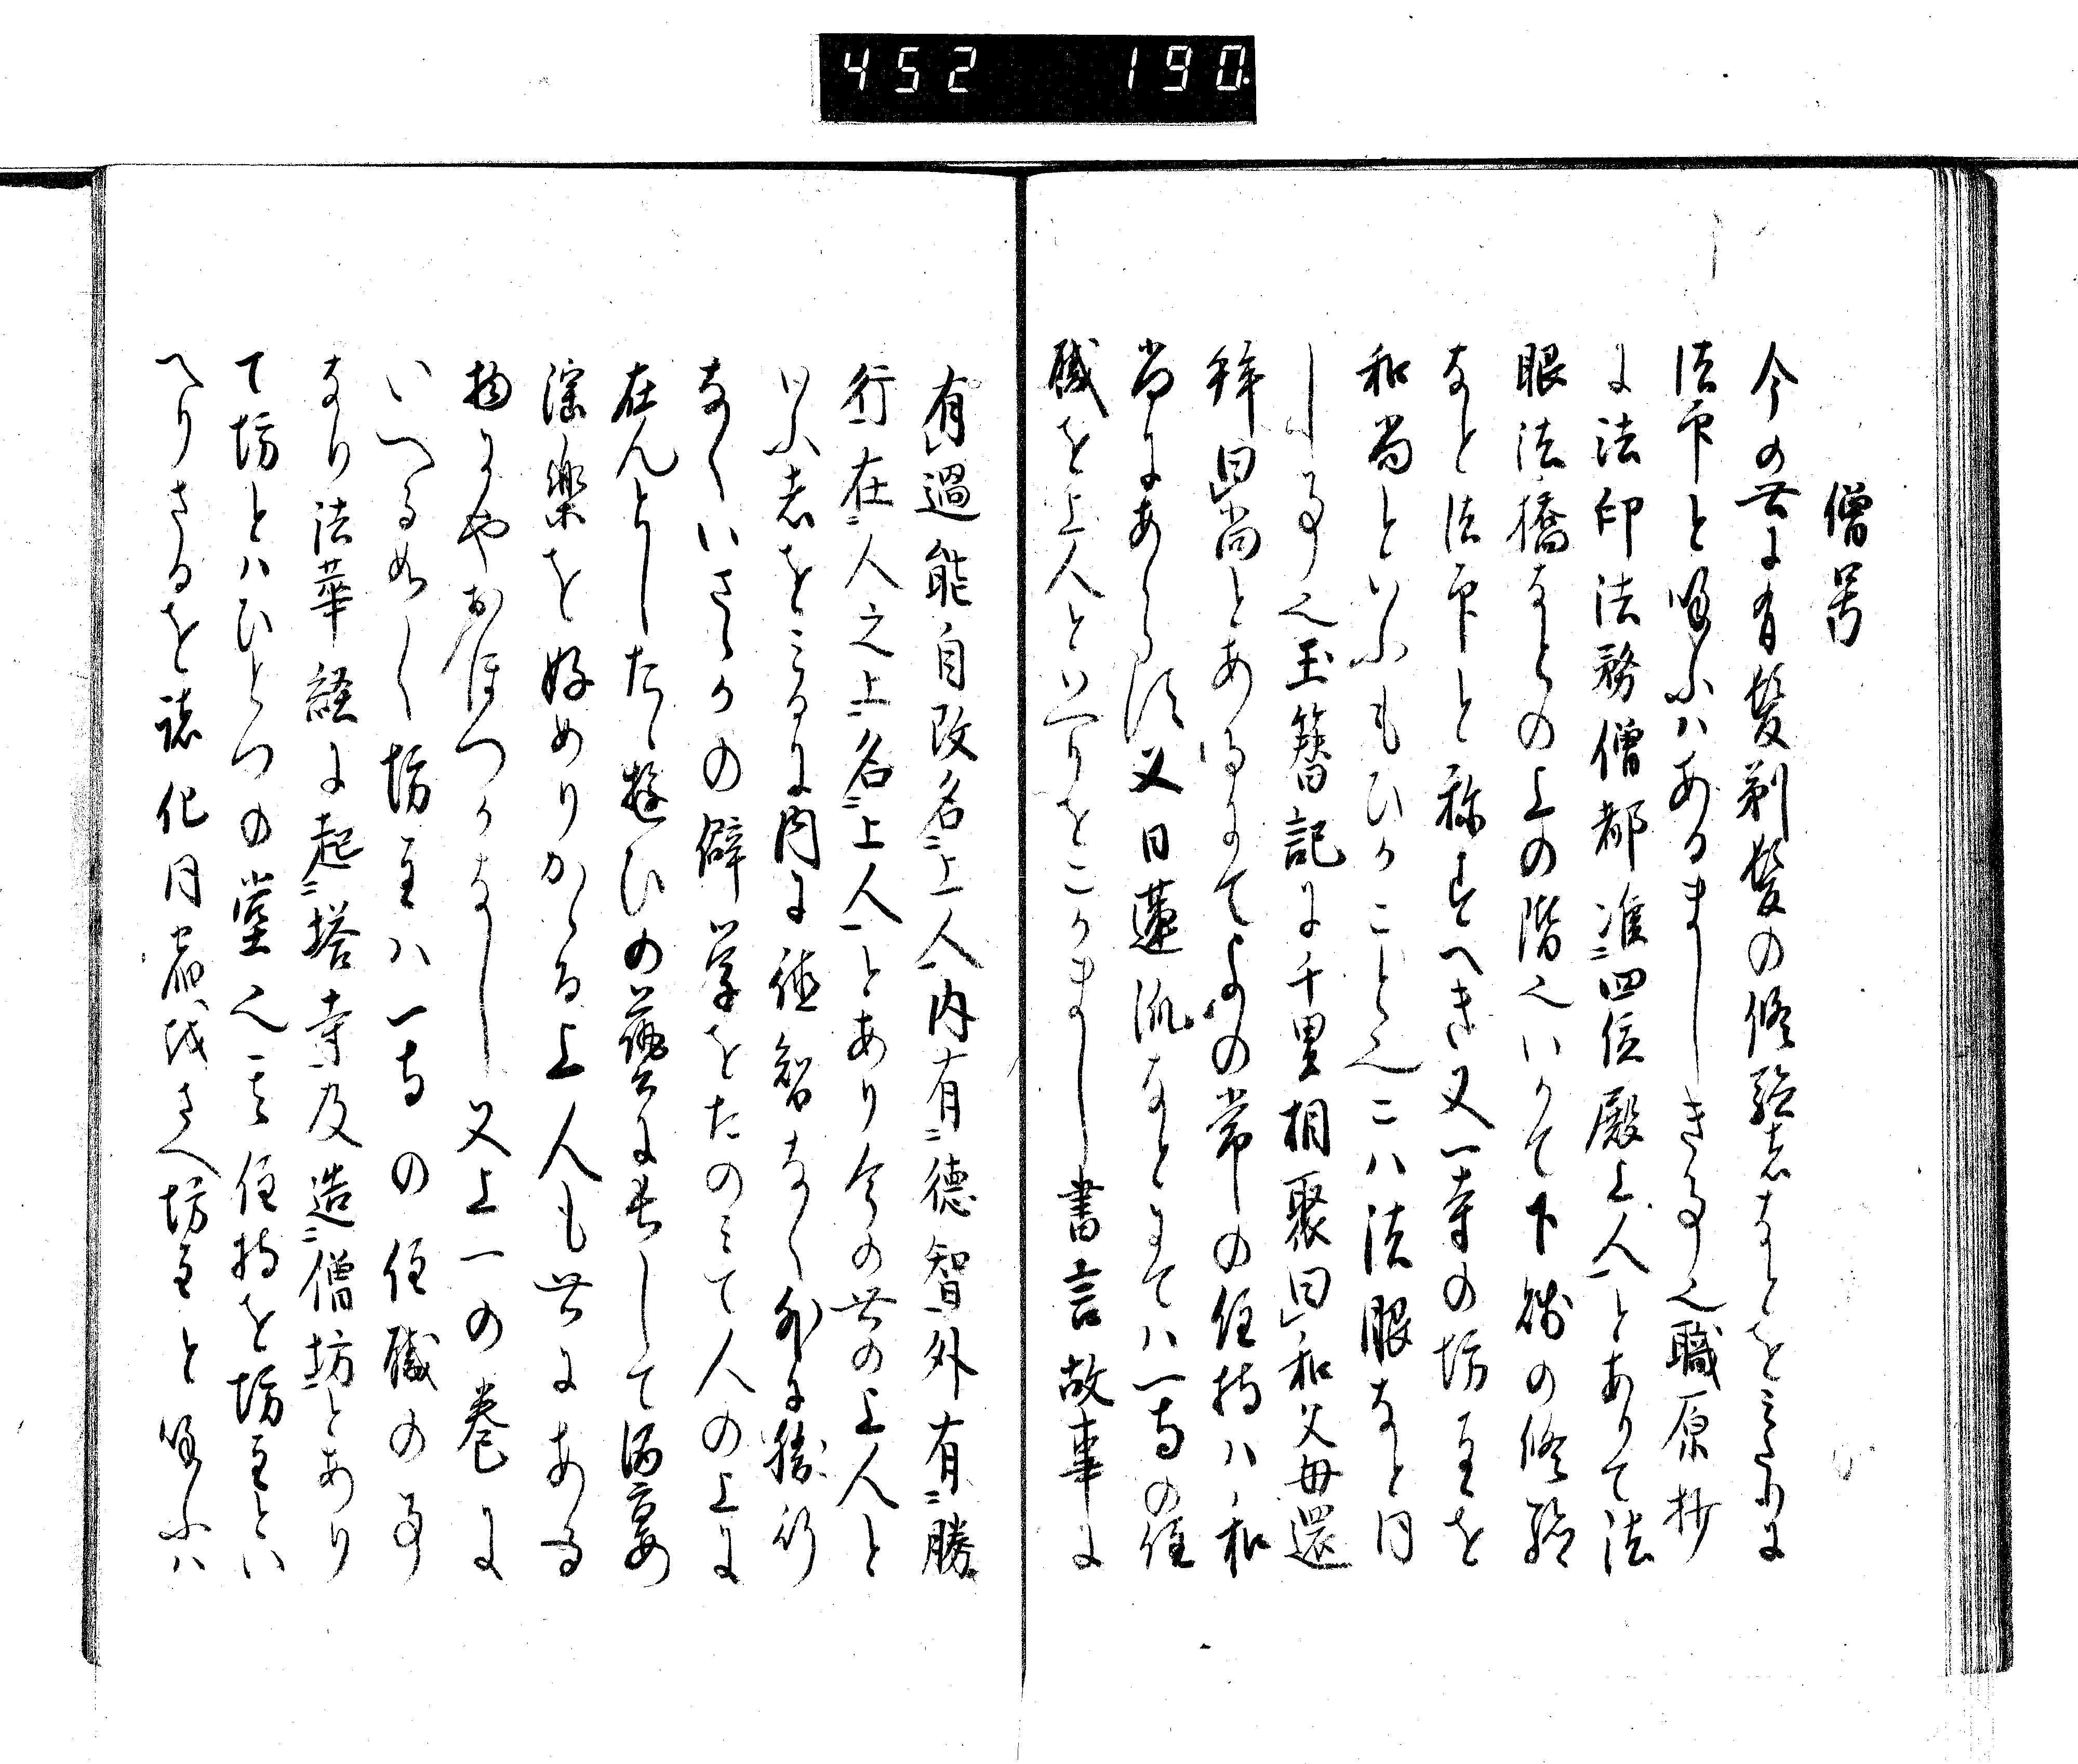 452 190
僧号
今の世に有髪剃髪の修験者なとをみたりに
法印と呼ふハあるましき事也職原抄
に法印法務僧都准四位殿上人とありて法
眼法橋なとの上の階也いかて下賤の修験
なと法印と称すへき又一寺の坊主を
和尚といふもひかこと也こハ法服なと同
しる事也玉簪記に千里相聚曰和父母還
拜曰尚とあるにて よの常の住持ハ和
尚にあらす又日蓮派なとにてハ一寺の住
職を上人といへりをこかまし書言故事に
有過能自改名上人内有徳智外有勝
行在人之上名上人とあり今の世の上人と
いふ者をみるに内に徳智なく外に勝行
なくいさゝかの僻学をたのみて人の上に
在んとしたゝ遊ひの藝に長して酒宴
淫楽を好めりかゝる上人も世にある
物にやおほつかなし又上一の巻に
いへる如く坊主ハ一寺の住職の事
なり法華経に起塔寺及造僧坊とあり
て坊とハひとつの堂也其住持を坊主とい
へりさるを諸化同宿 さへ坊主と呼ふハ